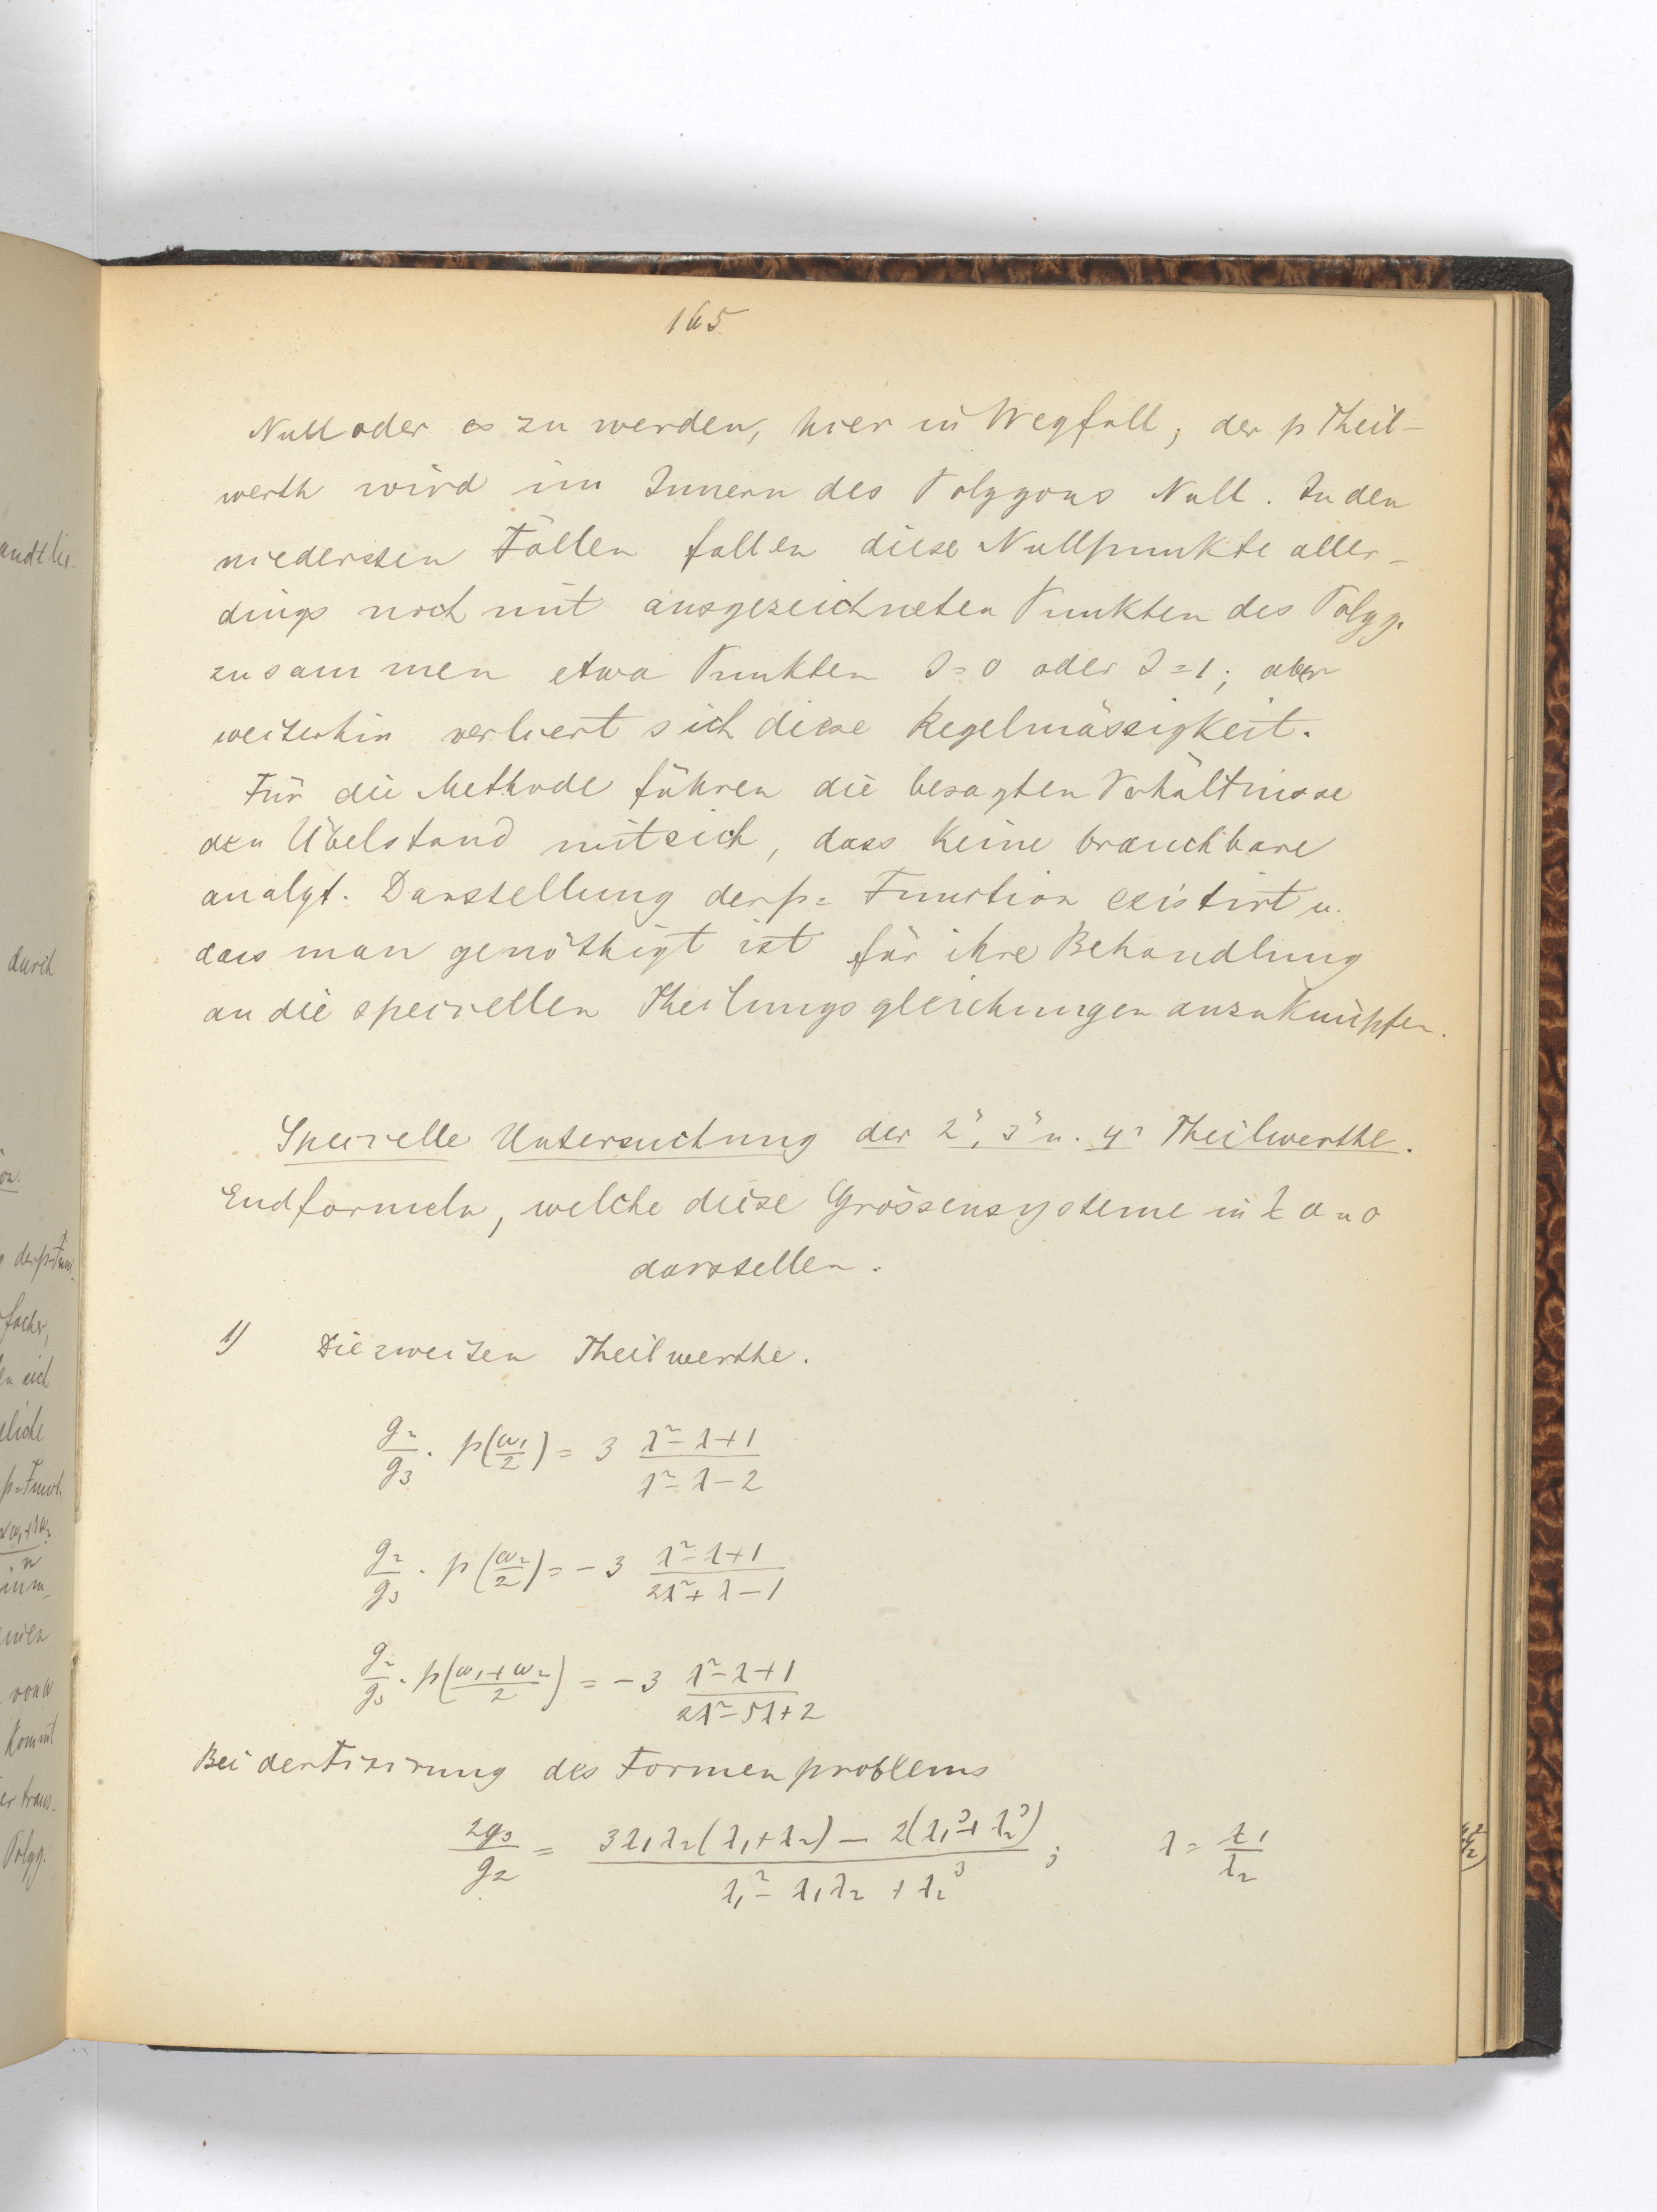 165
Null oder ∞ zu werden, hier in Wegfall; der p Theil-
werth wird im Innern des Polygons Null. In den
niedersten Fällen fallen diese Nullpunkte aller-
dings noch mit ausgezeichneten Punkten des Polyg.
zusammen etwa Punkten J=0 oder J=1; aber
weiterhin verliert sich diese Regelmässigkeit.
Für die Methode führen die besagten Verhältnisse
den Übelstand mit sich, dass keine brauchbare
analyt. Darstellung der p= Function existirt u.
dass man genöthigt ist für ihre Behandlung
an die speciellen Theilungsgleichungen anzuknüpfen.
Specielle Untersuchung der 2", 3" u. 4" Theilwerthe.
Endformeln, welche diese Grössensysteme in
darstellen.
1) Die zweiten Theilwerthe.
g₂/g₃ · p(ω₁/2) = 3 (λ²-λ+1)/(λ²-λ-2)
g₂/g₃ · p(ω₂/2) = -3 (λ²-λ+1)/(2λ²+λ-1)
g₂/g₃ · p((ω₁+ω₂)/2) = -3 (λ²-λ+1)/(2λ²-5λ+2)
Bei der Fixirung des Formenproblems
2g₃/g₂ = (3λ₁λ₂(λ₁+λ₂) - 2(λ₁³+λ₂³))/(λ₁²-λ₁λ₂+λ₂³); λ = λ₁/λ₂
durch